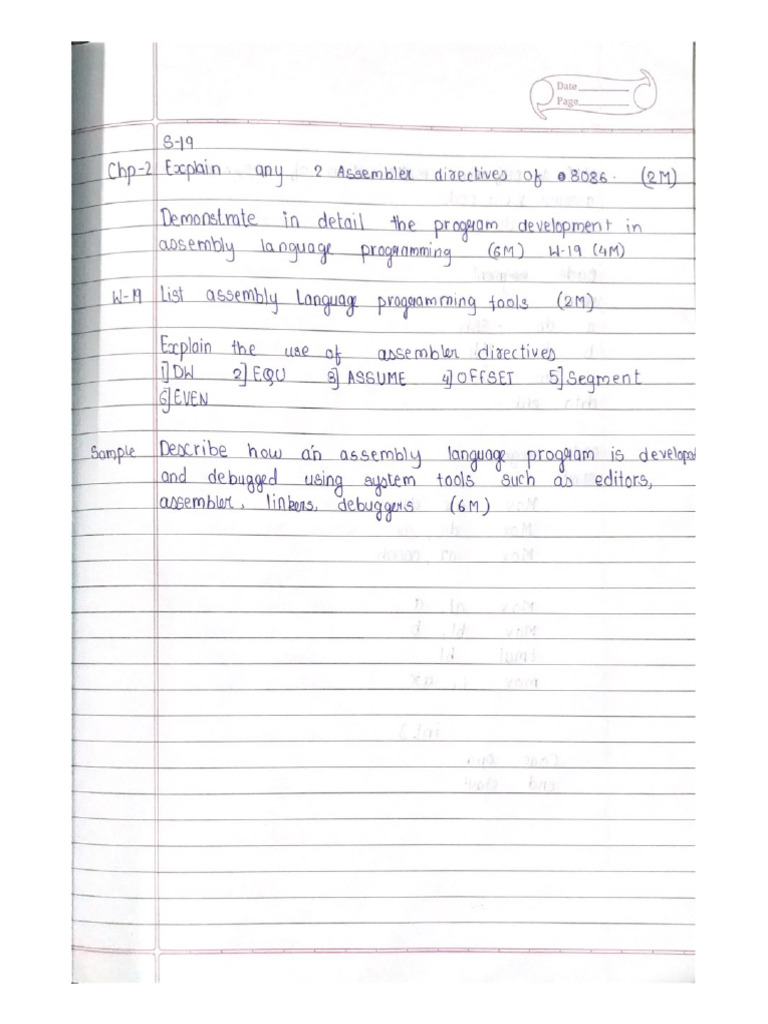 Date
Page
S-19
Chp-2 Explain any 2 Assembler directives of 8086. (2M)
Demonstrate in detail the program development in
assembly language programming (6M) W-19 (4M)
W-19 List assembly Language programming tools (2M)
Explain the use of assembler directives
1] DW 2] EQU 3] ASSUME 4] OFFSET 5] Segment
6] EVEN
Sample Describe how an assembly language program is developed
and debugged using system tools such as editors,
assembler, linkers, debuggers (6M)